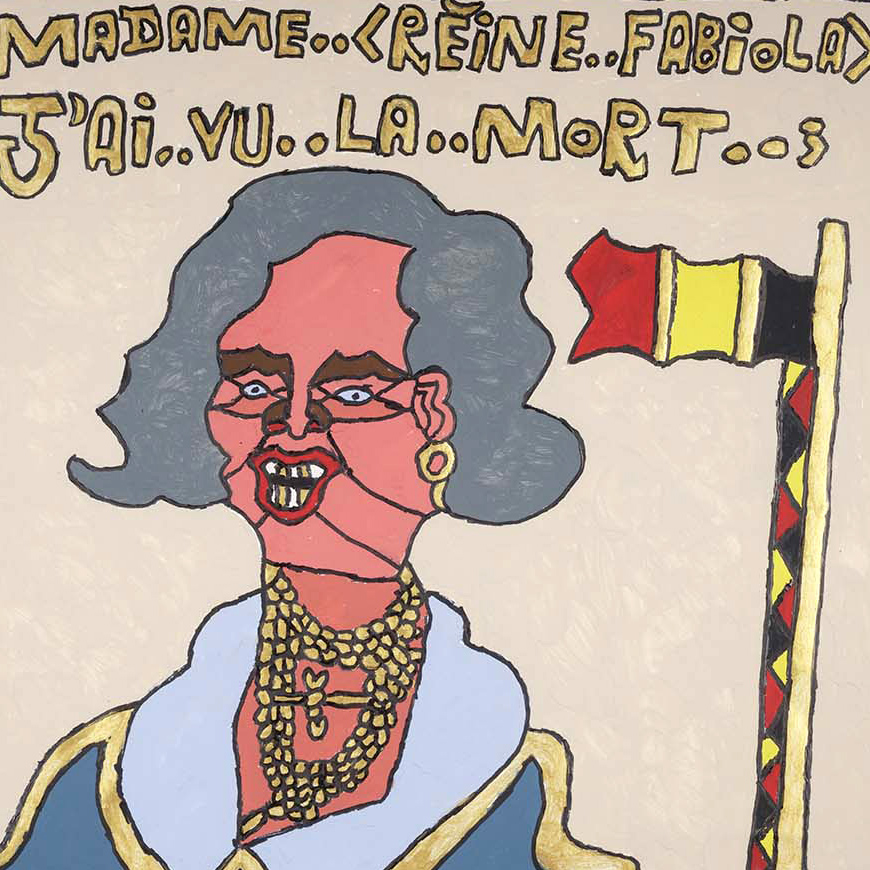 MADAME..<RĚiNE..FABiOLA>
J'Ai..VU..LA..MORT...;